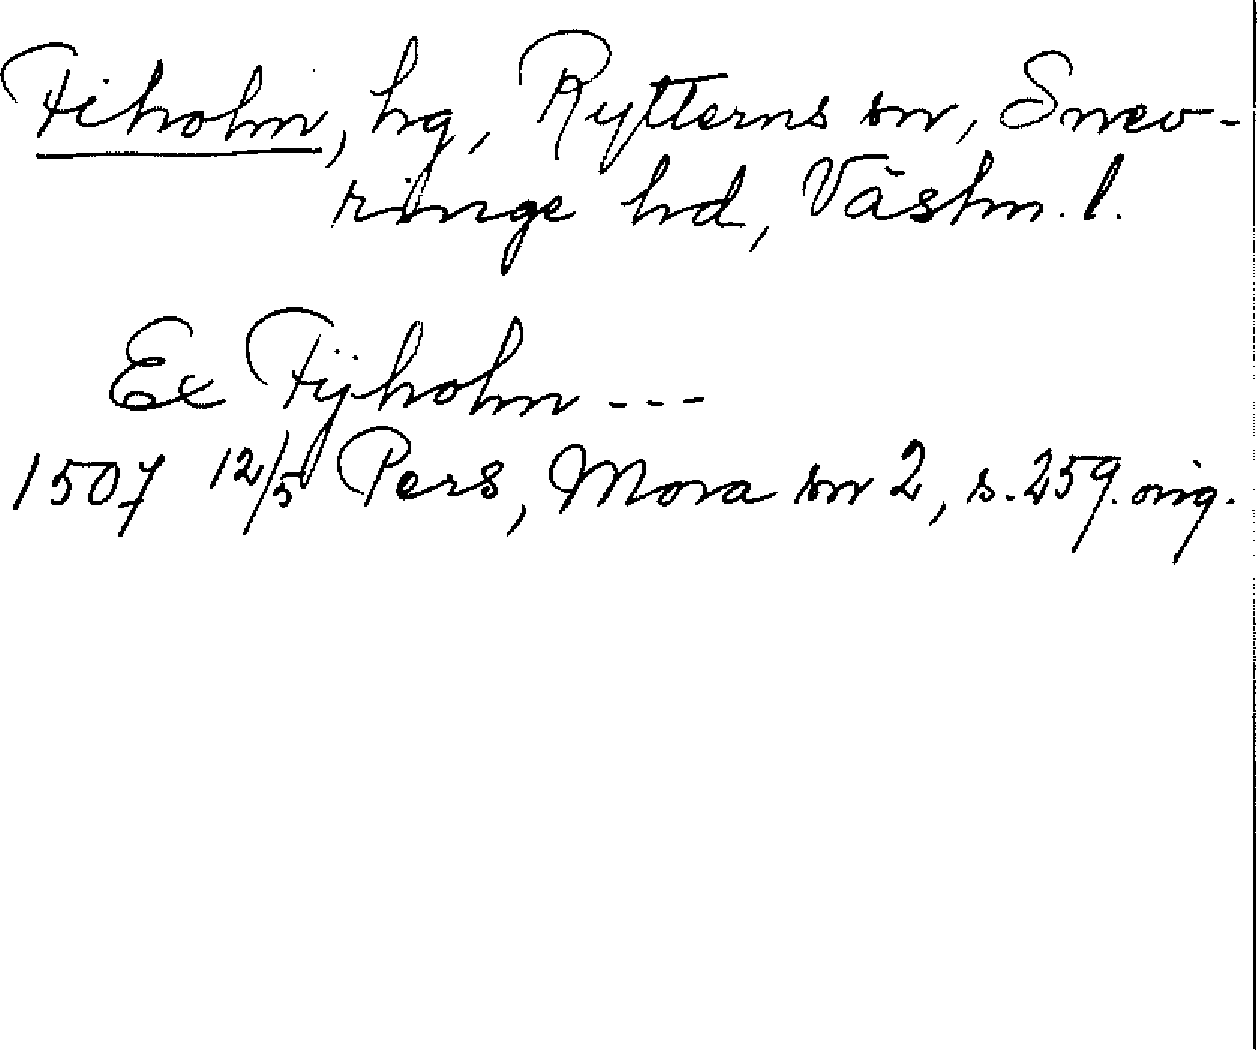 Fiholm, hg, Rytterns sn, Snev-
ringe hd, Västm. l.
Ex Fijholm ---
1507 12/5 Pers, Mora sn 2, s. 259. orig.